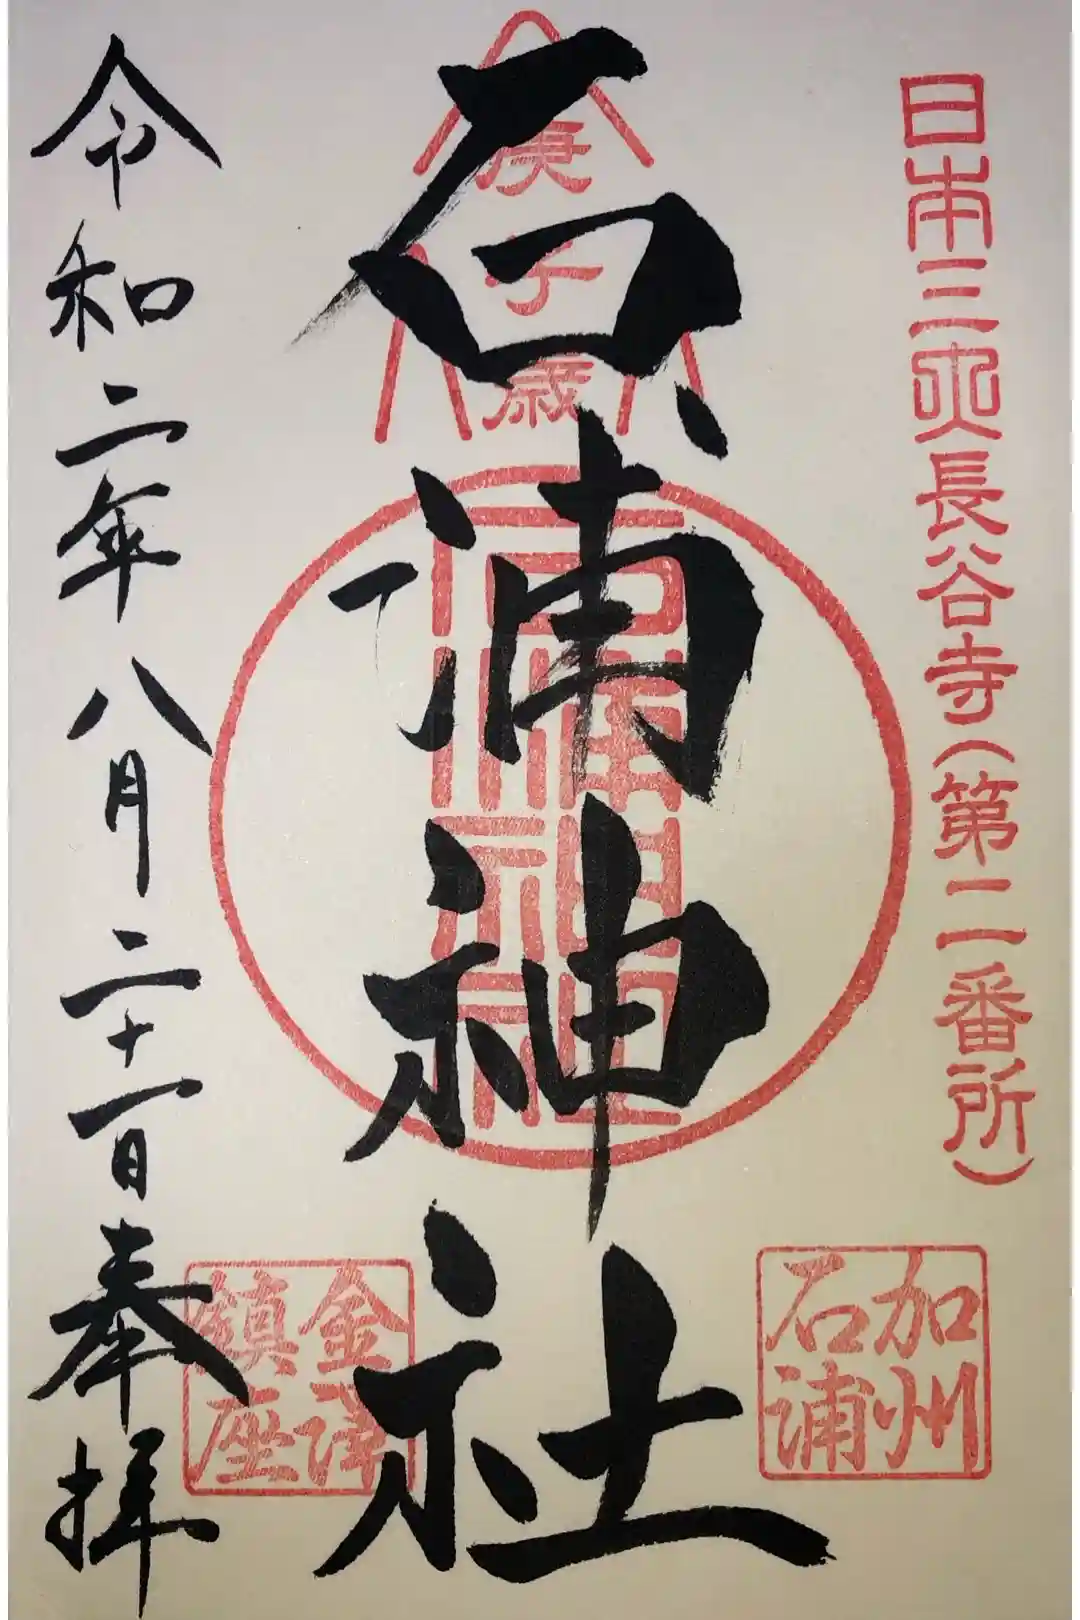 日本三大長谷寺(第二番所)
加州
石浦
庚子歳
石浦神社
石浦神社
金澤
鎮座
令和二年八月二十一日奉拝